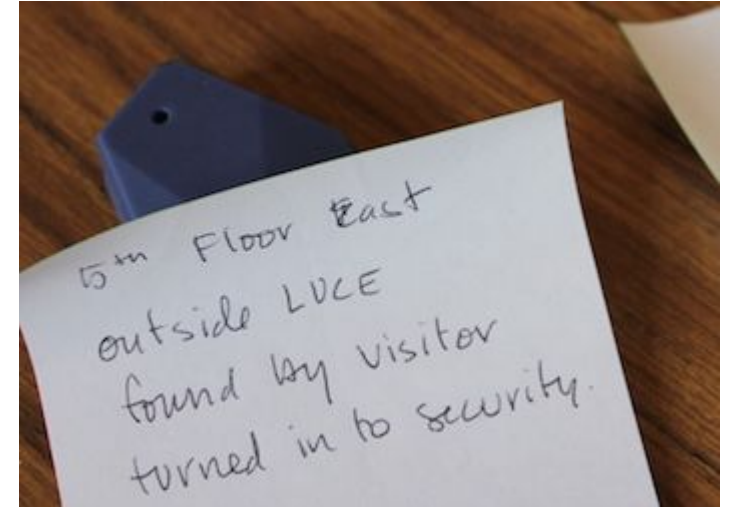 5th Floor East
outside LUCE
found by visitor
turned in to security.